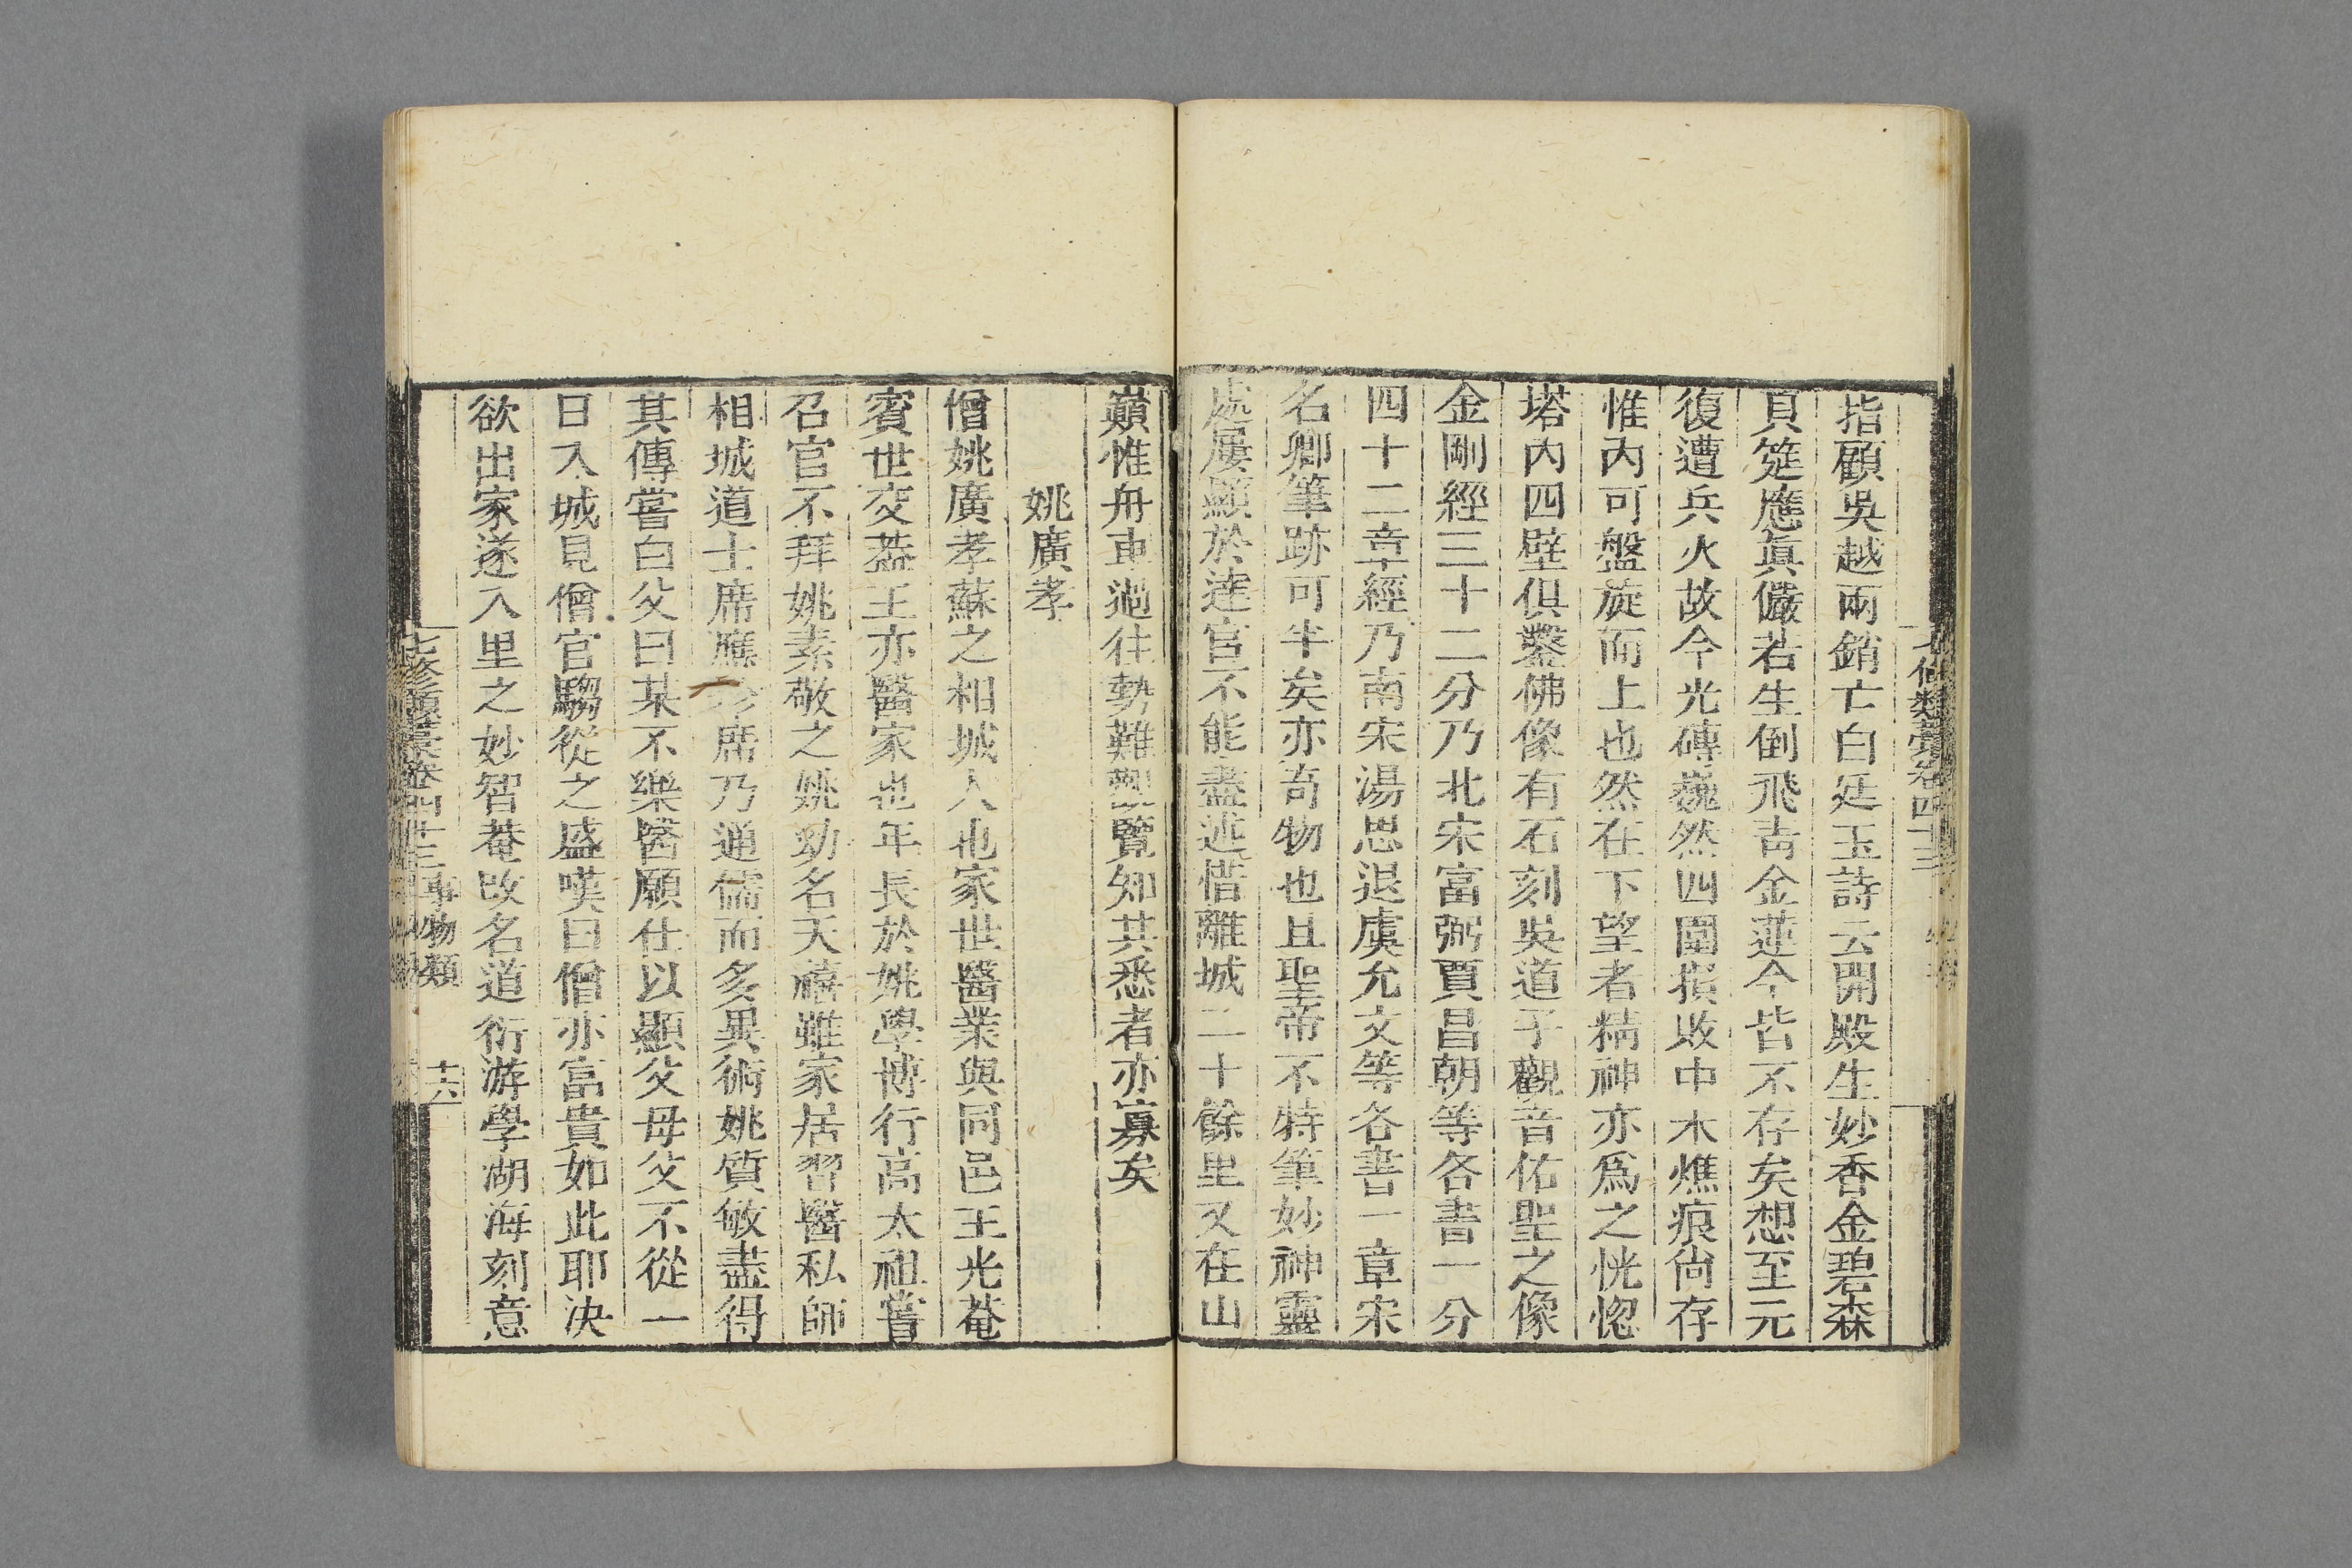 指顧吳越兩銷亡白廷玉詩云開殿生妙香金碧森
貝筵應眞儼若生倒飛靑金蓮今皆不存矣想至元
復遭兵火故今光磚巍然四圍損敗中木燋痕尙存
惟內可盤旋而上也然在下望者精神亦爲之恍惚
塔內四壁俱鑿佛像有石刻吳道子觀音佑聖之像
金剛經三十二分乃北宋富弼賈昌朝等各書一分
四十二章經乃南宋湯思退虞允文等各書一章宋
名卿筆跡可半矣亦奇物也且聖帝不特筆妙神靈
處屢顯於達官不能盡述惜離城二十餘里又在山
巔惟舟車過往勢難觀覽知其悉者亦寡矣
姚廣孝
僧姚廣孝蘇之相城人也家世醫業與同邑王光菴
賓世交葢王亦醫家也年長於姚學博行高太祖嘗
召官不拜姚素敬之姚幼名天禧雖家居習醫私師
相城道士席應珍席乃通儒而多異術姚質敏盡得
其傳嘗白父曰某不樂醫願仕以顯父母父不從一
日入城見僧官騶從之盛嘆曰僧亦富貴如此耶決
欲出家遂入里之妙智菴改名道衍游學湖海刻意
七修類稾卷四十三 事物類 十六